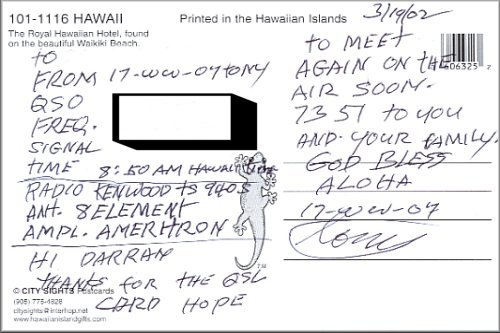 101-1116 HAWAII
The Royal Hawaiian Hotel, found
on the beautiful Waikiki Beach.
Printed in the Hawaiian Islands
TO
FROM 17-WW-07 TONY
QSO
FREQ.
SIGNAL
TIME 8:50 AM HAWAII TIME
RADIO KENWOOD TS 940S
ANT. 8 ELEMENT
AMPL. AMERITRON
HI DARRAN
THANKS FOR THE QSL
CARD HOPE
© CITY SIGHTS Postcards
(905) 775-4828
citysights@interhop.net
www.hawaiianislandgifts.com
3/19/02
TO MEET
AGAIN ON THE
AIR SOON.
73 51 TO YOU
AND YOUR FAMILY.
GOD BLESS
ALOHA
17-WW-07
Tony
606325 7
TM